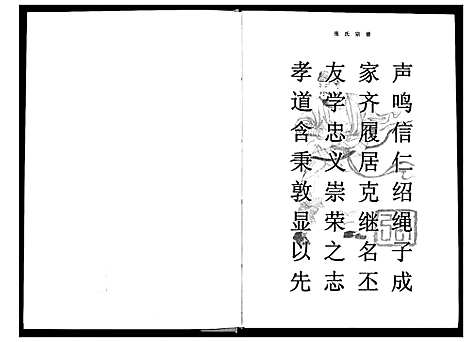 氏宗谱
孝友家声
道学齐鸣
含忠履信
秉义居仁
敦崇克绍
显荣继绳
以之名子
先志丕成